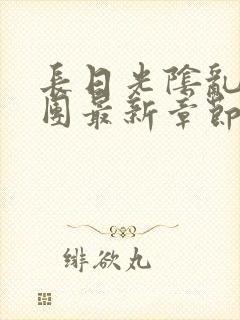 長日光陰亂
團最新章節
緋欲丸